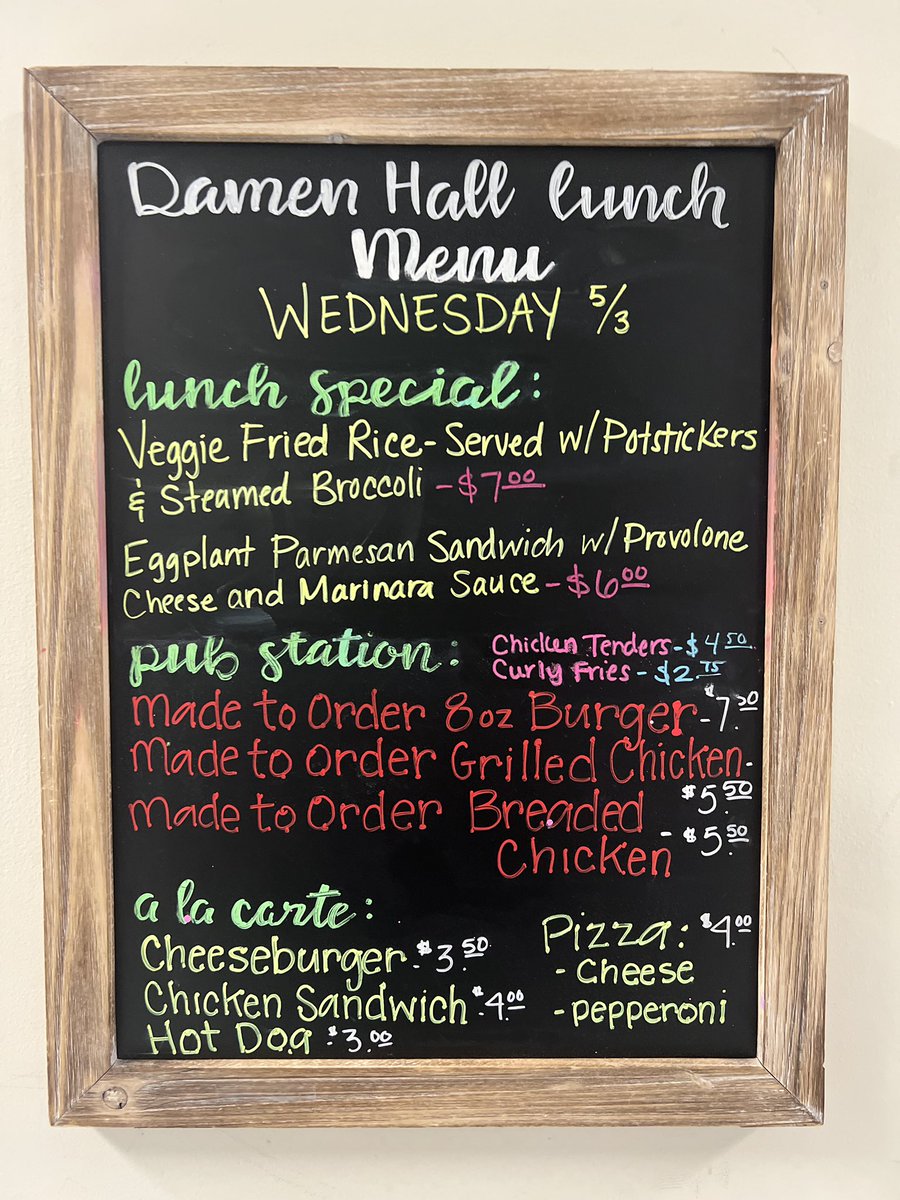 Damen Hall lunch
Menu
WEDNESDAY 5/3
lunch special:
Veggie Fried Rice- Served w/ Potstickers
& Steamed Broccoli - $7.00
Eggplant Parmesan Sandwich w/ Provolone
Cheese and Marinara Sauce - $6.00
pub station:
Chicken Tenders - $4.50
Curly Fries - $2.75
Made to Order 8oz Burger - $7.50
Made to Order Grilled Chicken -
$5.50
Made to Order Breaded
Chicken - $5.50
a la carte:
Cheeseburger - $3.50
Chicken Sandwich - $4.00
Hot Dog - $3.00
Pizza: $4.00
- Cheese
- pepperoni